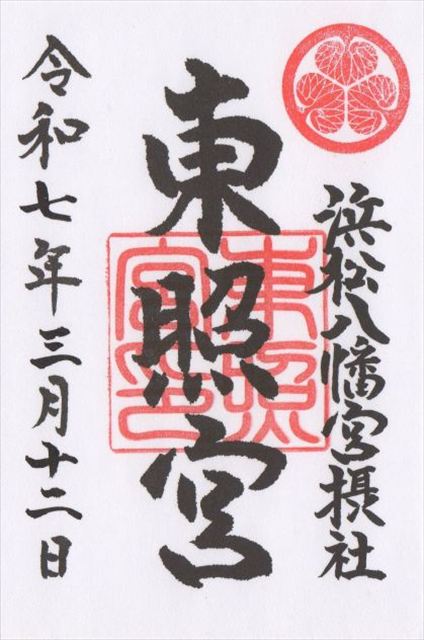 浜松八幡宮摂社
東照宮
東照宮印
令和七年三月十二日